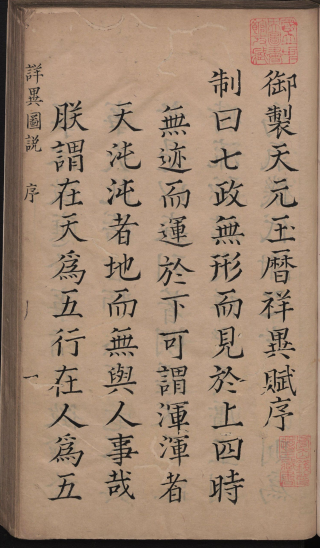 御製天元玉暦祥異賦序
制曰七政無形而見於上四時
無迹而運於下可謂渾渾者
天沌沌者地而無與人事哉
朕謂在天爲五行在人爲五
詳異圖説 序 一